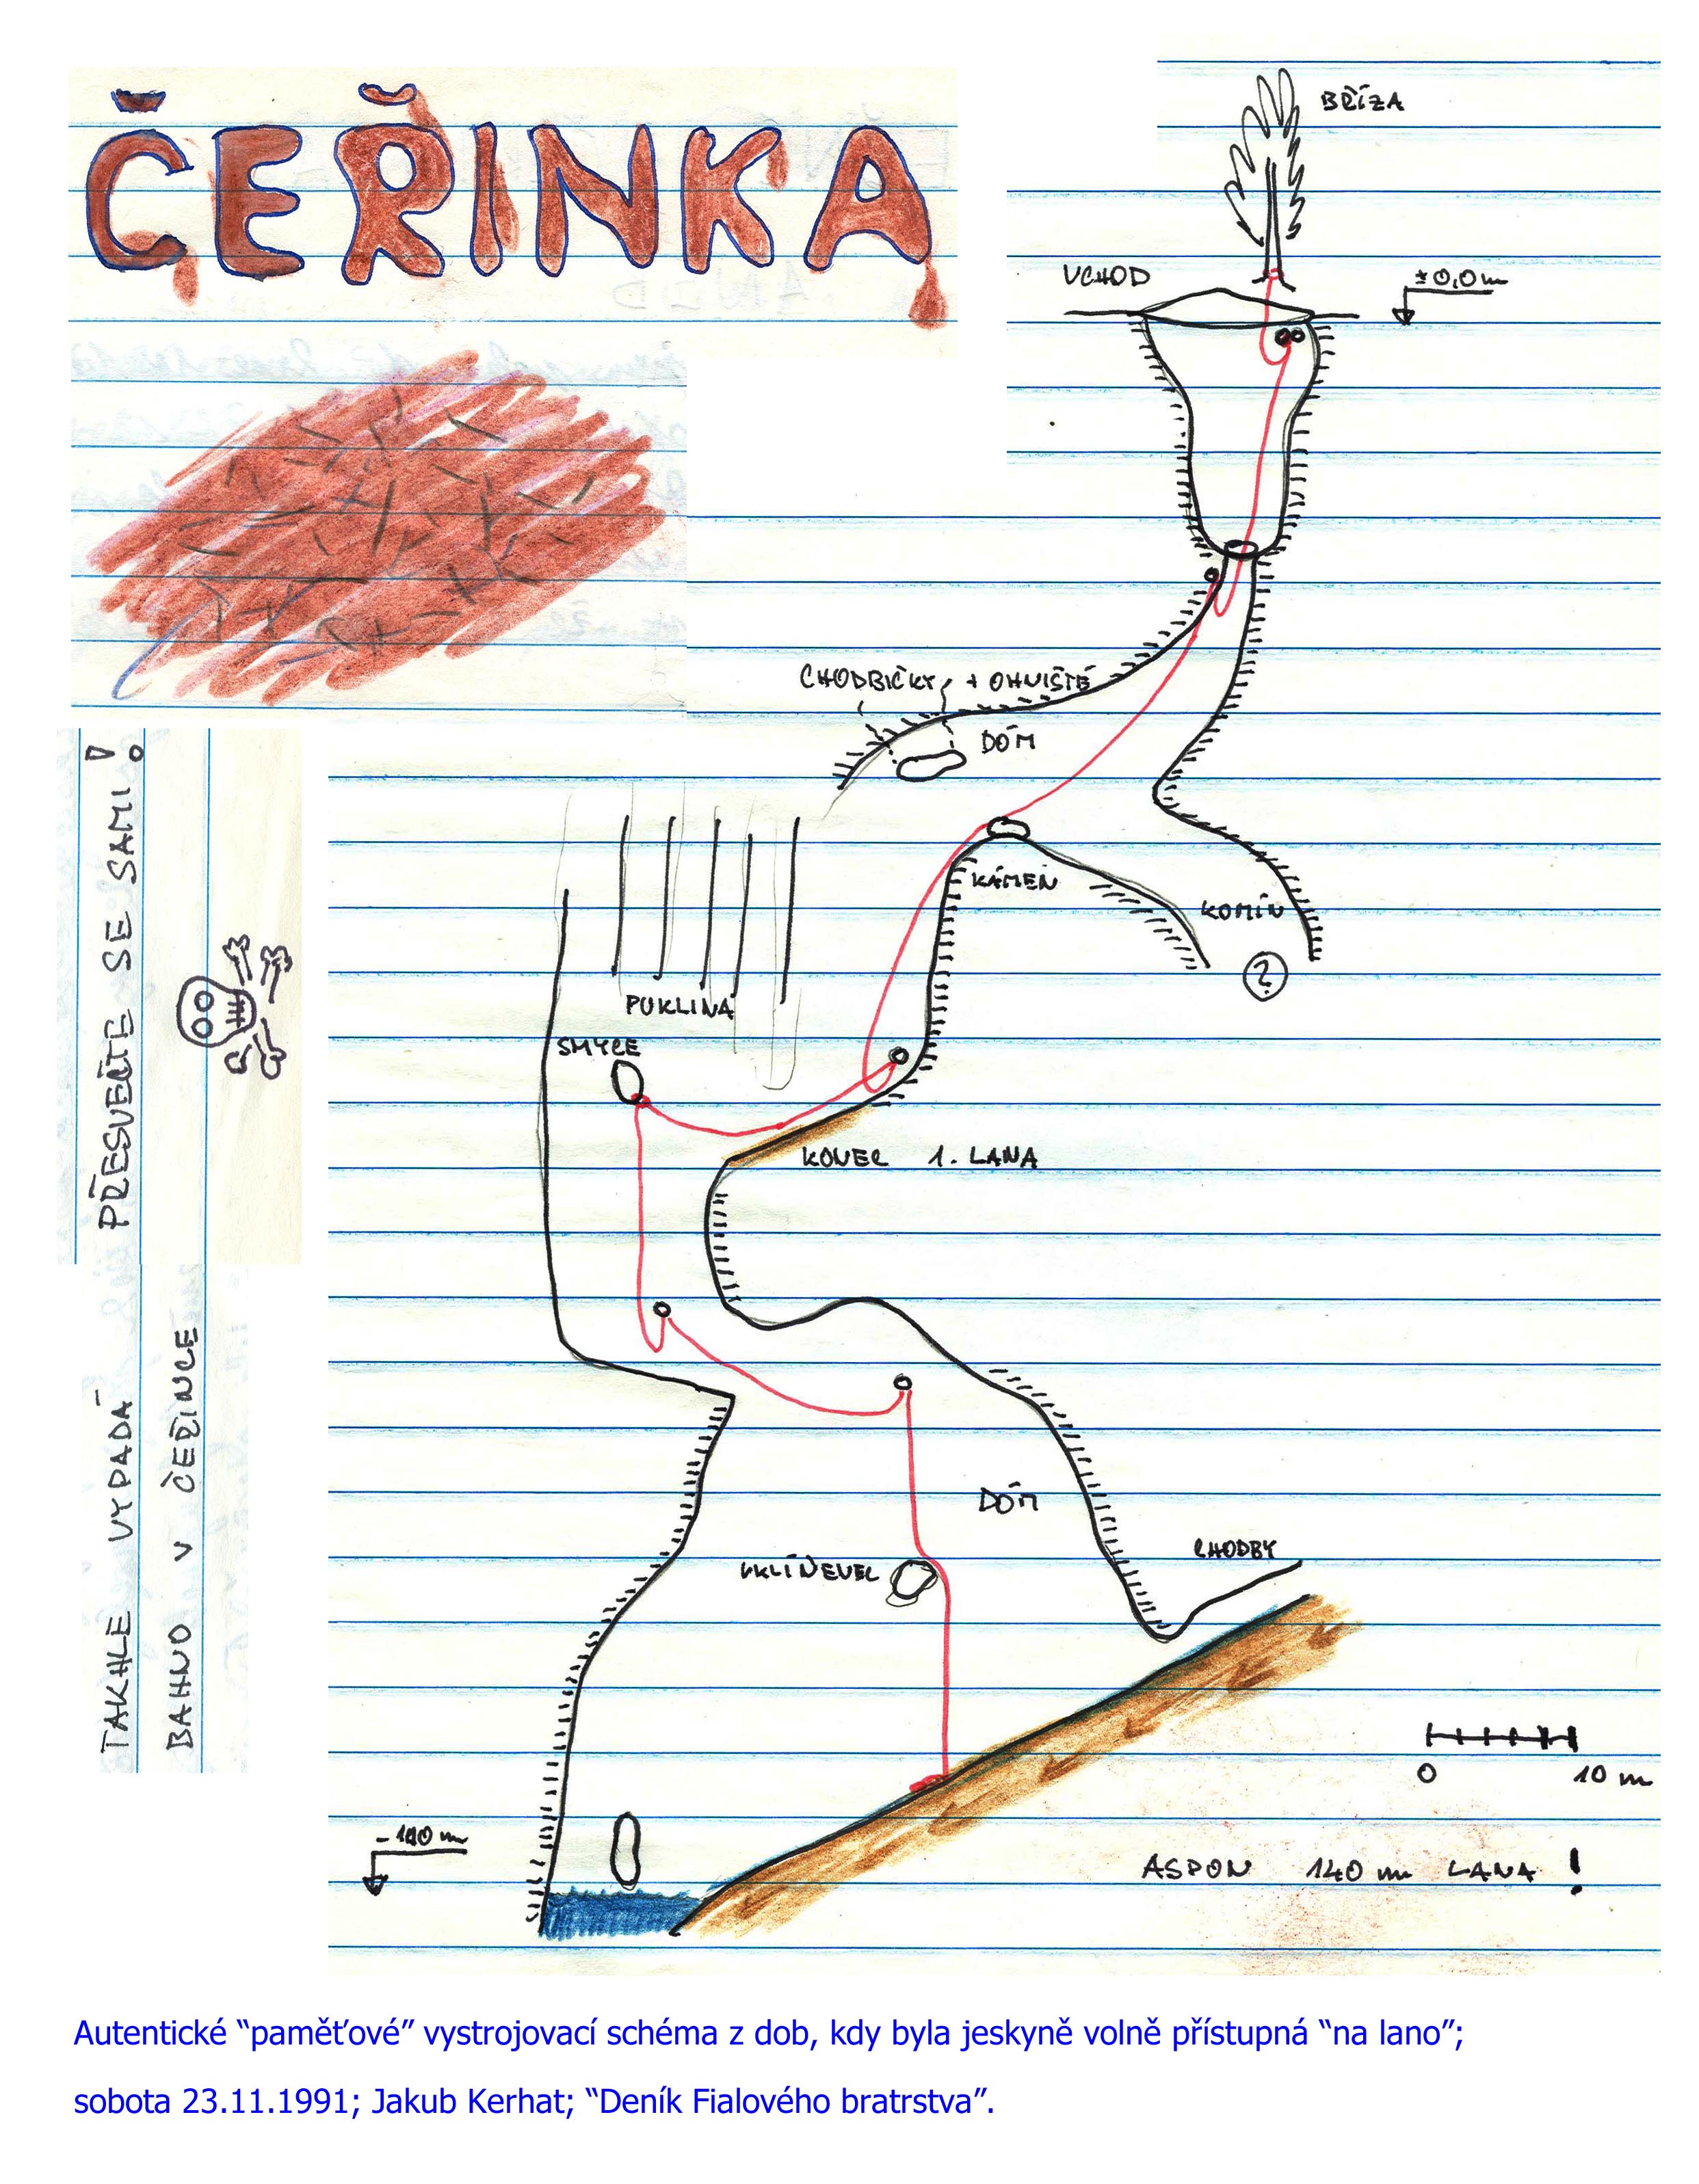 ČEŘINKA
BŘÍZA
VCHOD
±0,0 m
CHODBIČKY + OHNIŠTĚ
DÓM
KÁMEN
KOMÍN
?
PUKLINA
SMYCE
KONEC 1. LANA
DÓM
VKLÍNENEC
CHODBY
0 10 m
-100 m
ASPON 140 m LANA !
TAKHLE VYPADÁ
BAHNO V ČEŘINCE
PŘESVEČTE SE SAMI!
Autentické “paměťové” vystrojovací schéma z dob, kdy byla jeskyně volně přístupná “na lano”;
sobota 23.11.1991; Jakub Kerhat; “Deník Fialového bratrstva”.